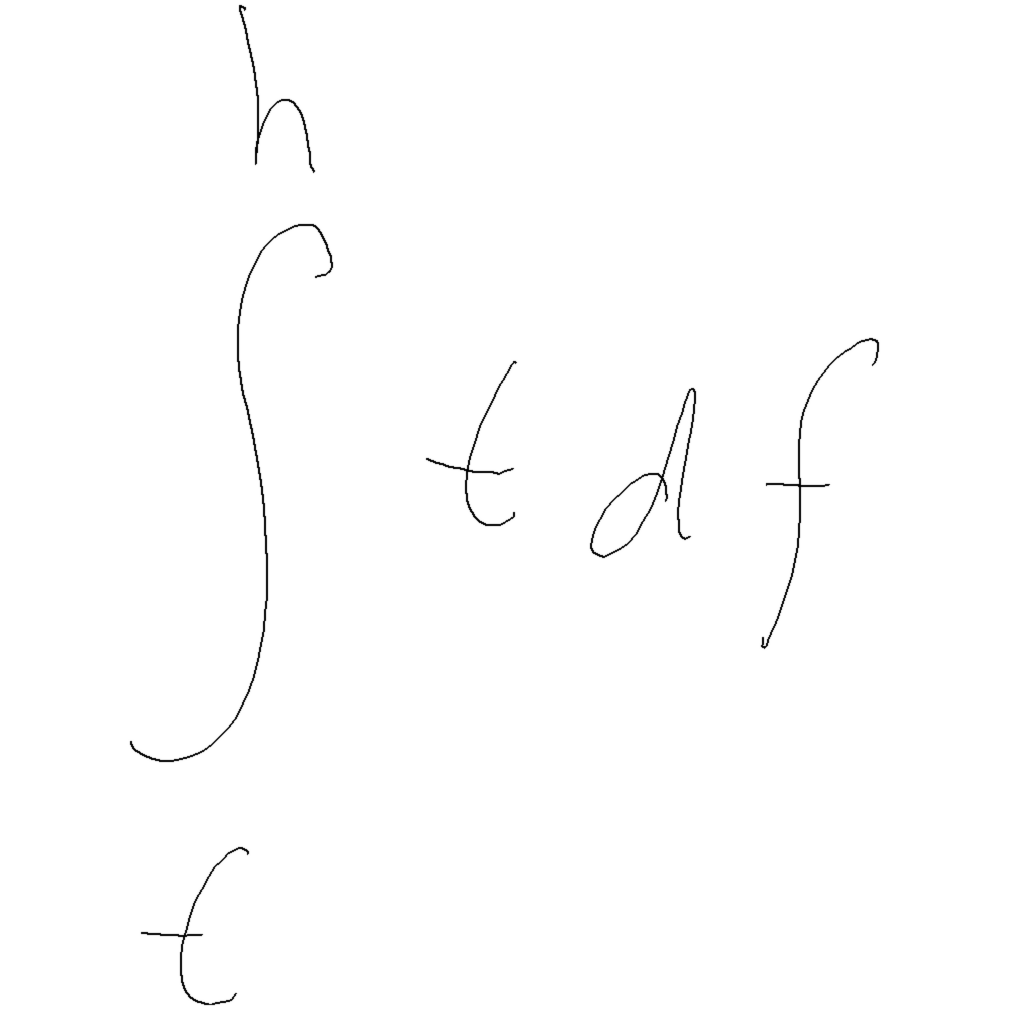 \int_{t}^{h} t d f